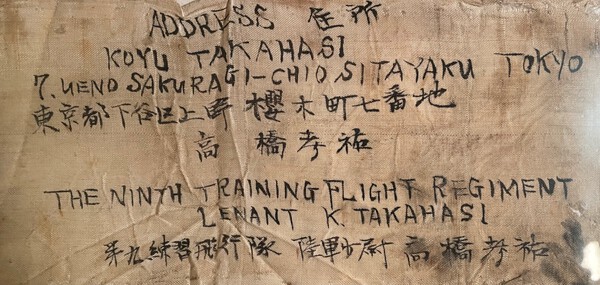 ADDRESS 住所
KOYU TAKAHASI
7. UENO SAKURAGI-CHIO SITAYAKU TOKYO
東京都下谷区上野櫻木町七番地
高橋孝祐
THE NINTH TRAINING FLIGHT REGIMENT
LENANT K. TAKAHASI
第九練習飛行隊 陸軍少尉 高橋孝祐